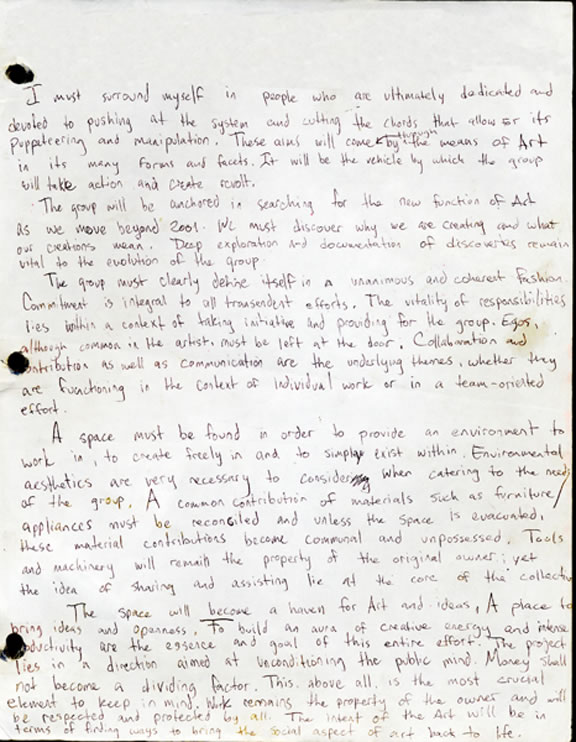 I must surround myself in people who are ultimately dedicated and
devoted to pushing at the system and cutting the chords that allow for its
puppeteering and manipulation. These aims will come through the means of Art
in its many forms and facets. It will be the vehicle by which the group
will take action and create revolt.
The group will be anchored in searching for the new function of Art
as we move beyond 2001. We must discover why we are creating and what
our creations mean. Deep exploration and documentation of discoveries remain
vital to the evolution of the group.
The group must clearly define itself in a unanimous and coherent fashion.
Commitment is integral to all transendent efforts. The vitality of responsibilities
lies within a context of taking initiative and providing for the group. Egos,
although common in the artist, must be left at the door. Collaboration and
contribution as well as communication are the underlying themes, whether they
are functioning in the context of individual work or in a team-oriented
effort.
A space must be found in order to provide an environment to
work in, to create freely in and to simply exist within. Environmental
aesthetics are very necessary to consider when catering to the needs
of the group. A common contribution of materials such as furniture/
appliances must be reconciled and unless the space is evacuated,
these material contributions become communal and unpossessed. Tools
and machinery will remain the property of the original owner; yet
the idea of sharing and assisting lie at the core of the collective
The space will become a haven for Art and ideas, A place to
bring ideas and openness. To build an aura of creative energy and intense
productivity are the essence and goal of this entire effort. The project
lies in a direction aimed at reconditioning the public mind. Money shall
not become a dividing factor. This above all is the most crucial
element to keep in mind. Work remains the property of the owner and will
be respected and protected by all. The intent of the Art will be in
terms of finding ways to bring the social aspect of art back to life.